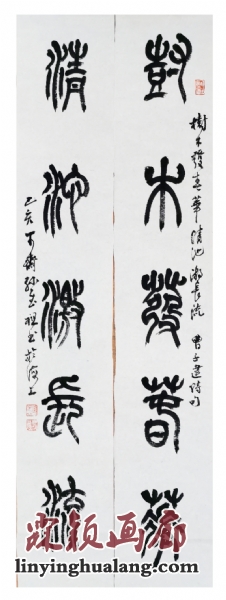 樹木發春華清池激長流 曹子建詩句
樹木發春華
清池激長流
乙亥
颖画廊
linyinghualang.com